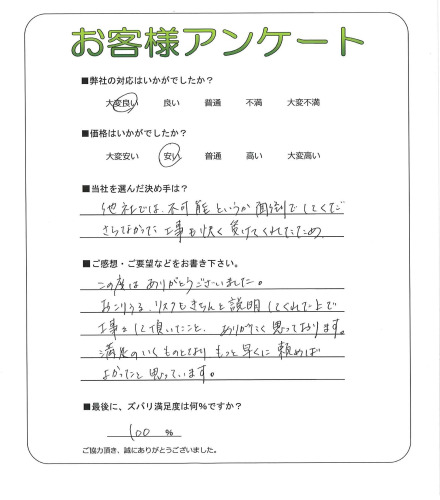 お客様アンケート
■弊社の対応はいかがでしたか?
大変良い 良い 普通 不満 大変不満
■価格はいかがでしたか?
大変安い 安い 普通 高い 大変高い
■当社を選んだ決め手は?
他社では、不可能というか面倒でしてくだ
さらなかった工事も快く負けてくれたため
■ご感想・ご要望などをお書き下さい。
この度はありがとうございました。
おこりうるリスクもきちんと説明してくれた上で
工事をして頂いたこと、ありがたく思っております。
満足のいくものとなり もっと早くに頼めば
よかったと思っています。
■最後に、ズバリ満足度は何%ですか?
100 %
ご協力頂き、誠にありがとうございました。